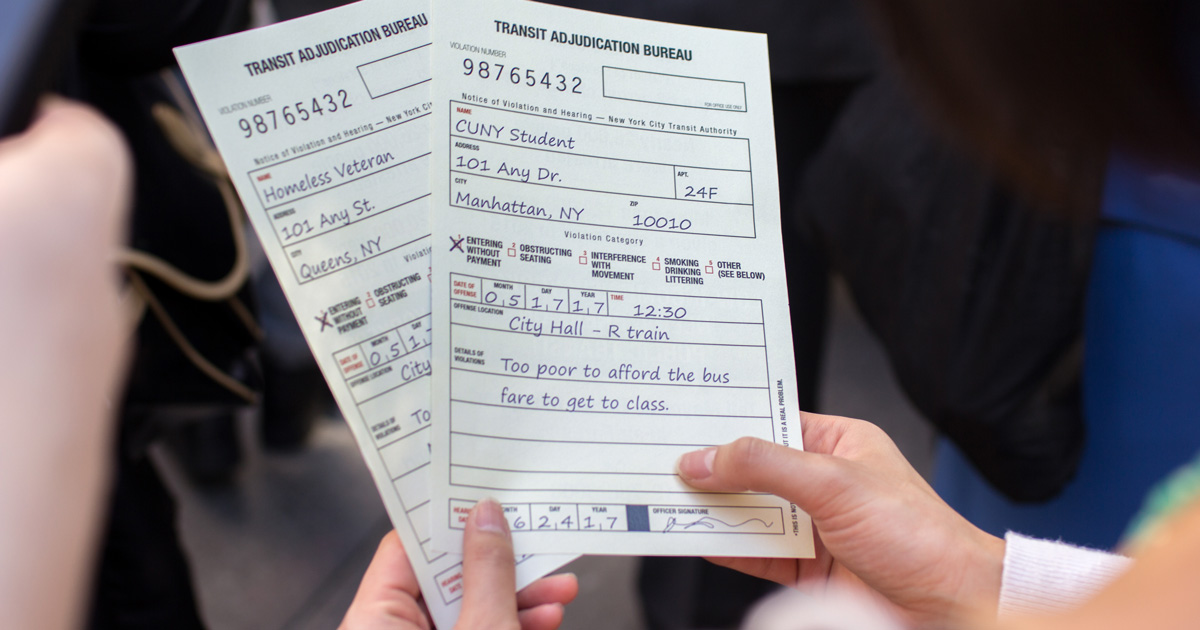 TRANSIT ADJUDICATION BUREAU
VIOLATION NUMBER
98765432
Notice of Violation and Hearing — New York
NAME
Homeless Veteran
ADDRESS
101 Any St.
CITY
Queens, NY
ENTERING
WITHOUT
PAYMENT
OBSTRUCTING
SEATING
DATE OF
OFFENSE
MONTH
DAY
05 1
OFFENSE LOCATION
City
DETAILS OF
VIOLATIONS
To
HEARING
DATE
TRANSIT ADJUDICATION BUREAU
VIOLATION NUMBER
98765432
FOR OFFICE USE ONLY
Notice of Violation and Hearing — New York City Transit Authority
NAME
CUNY Student
ADDRESS
101 Any Dr.
APT.
24F
CITY
Manhattan, NY
ZIP
10010
Violation Category
1 ENTERING
WITHOUT
PAYMENT
2 OBSTRUCTING
SEATING
3 INTERFERENCE
WITH
MOVEMENT
4 SMOKING
DRINKING
LITTERING
5 OTHER
(SEE BELOW)
DATE OF
OFFENSE
MONTH DAY YEAR TIME
05 17 17 12:30
OFFENSE LOCATION
City Hall – R train
DETAILS OF
VIOLATIONS
Too poor to afford the bus
fare to get to class.
DAY YEAR
6 24 17
OFFICER SIGNATURE
*THIS IS NO
UT IT IS A REAL PROBLEM.